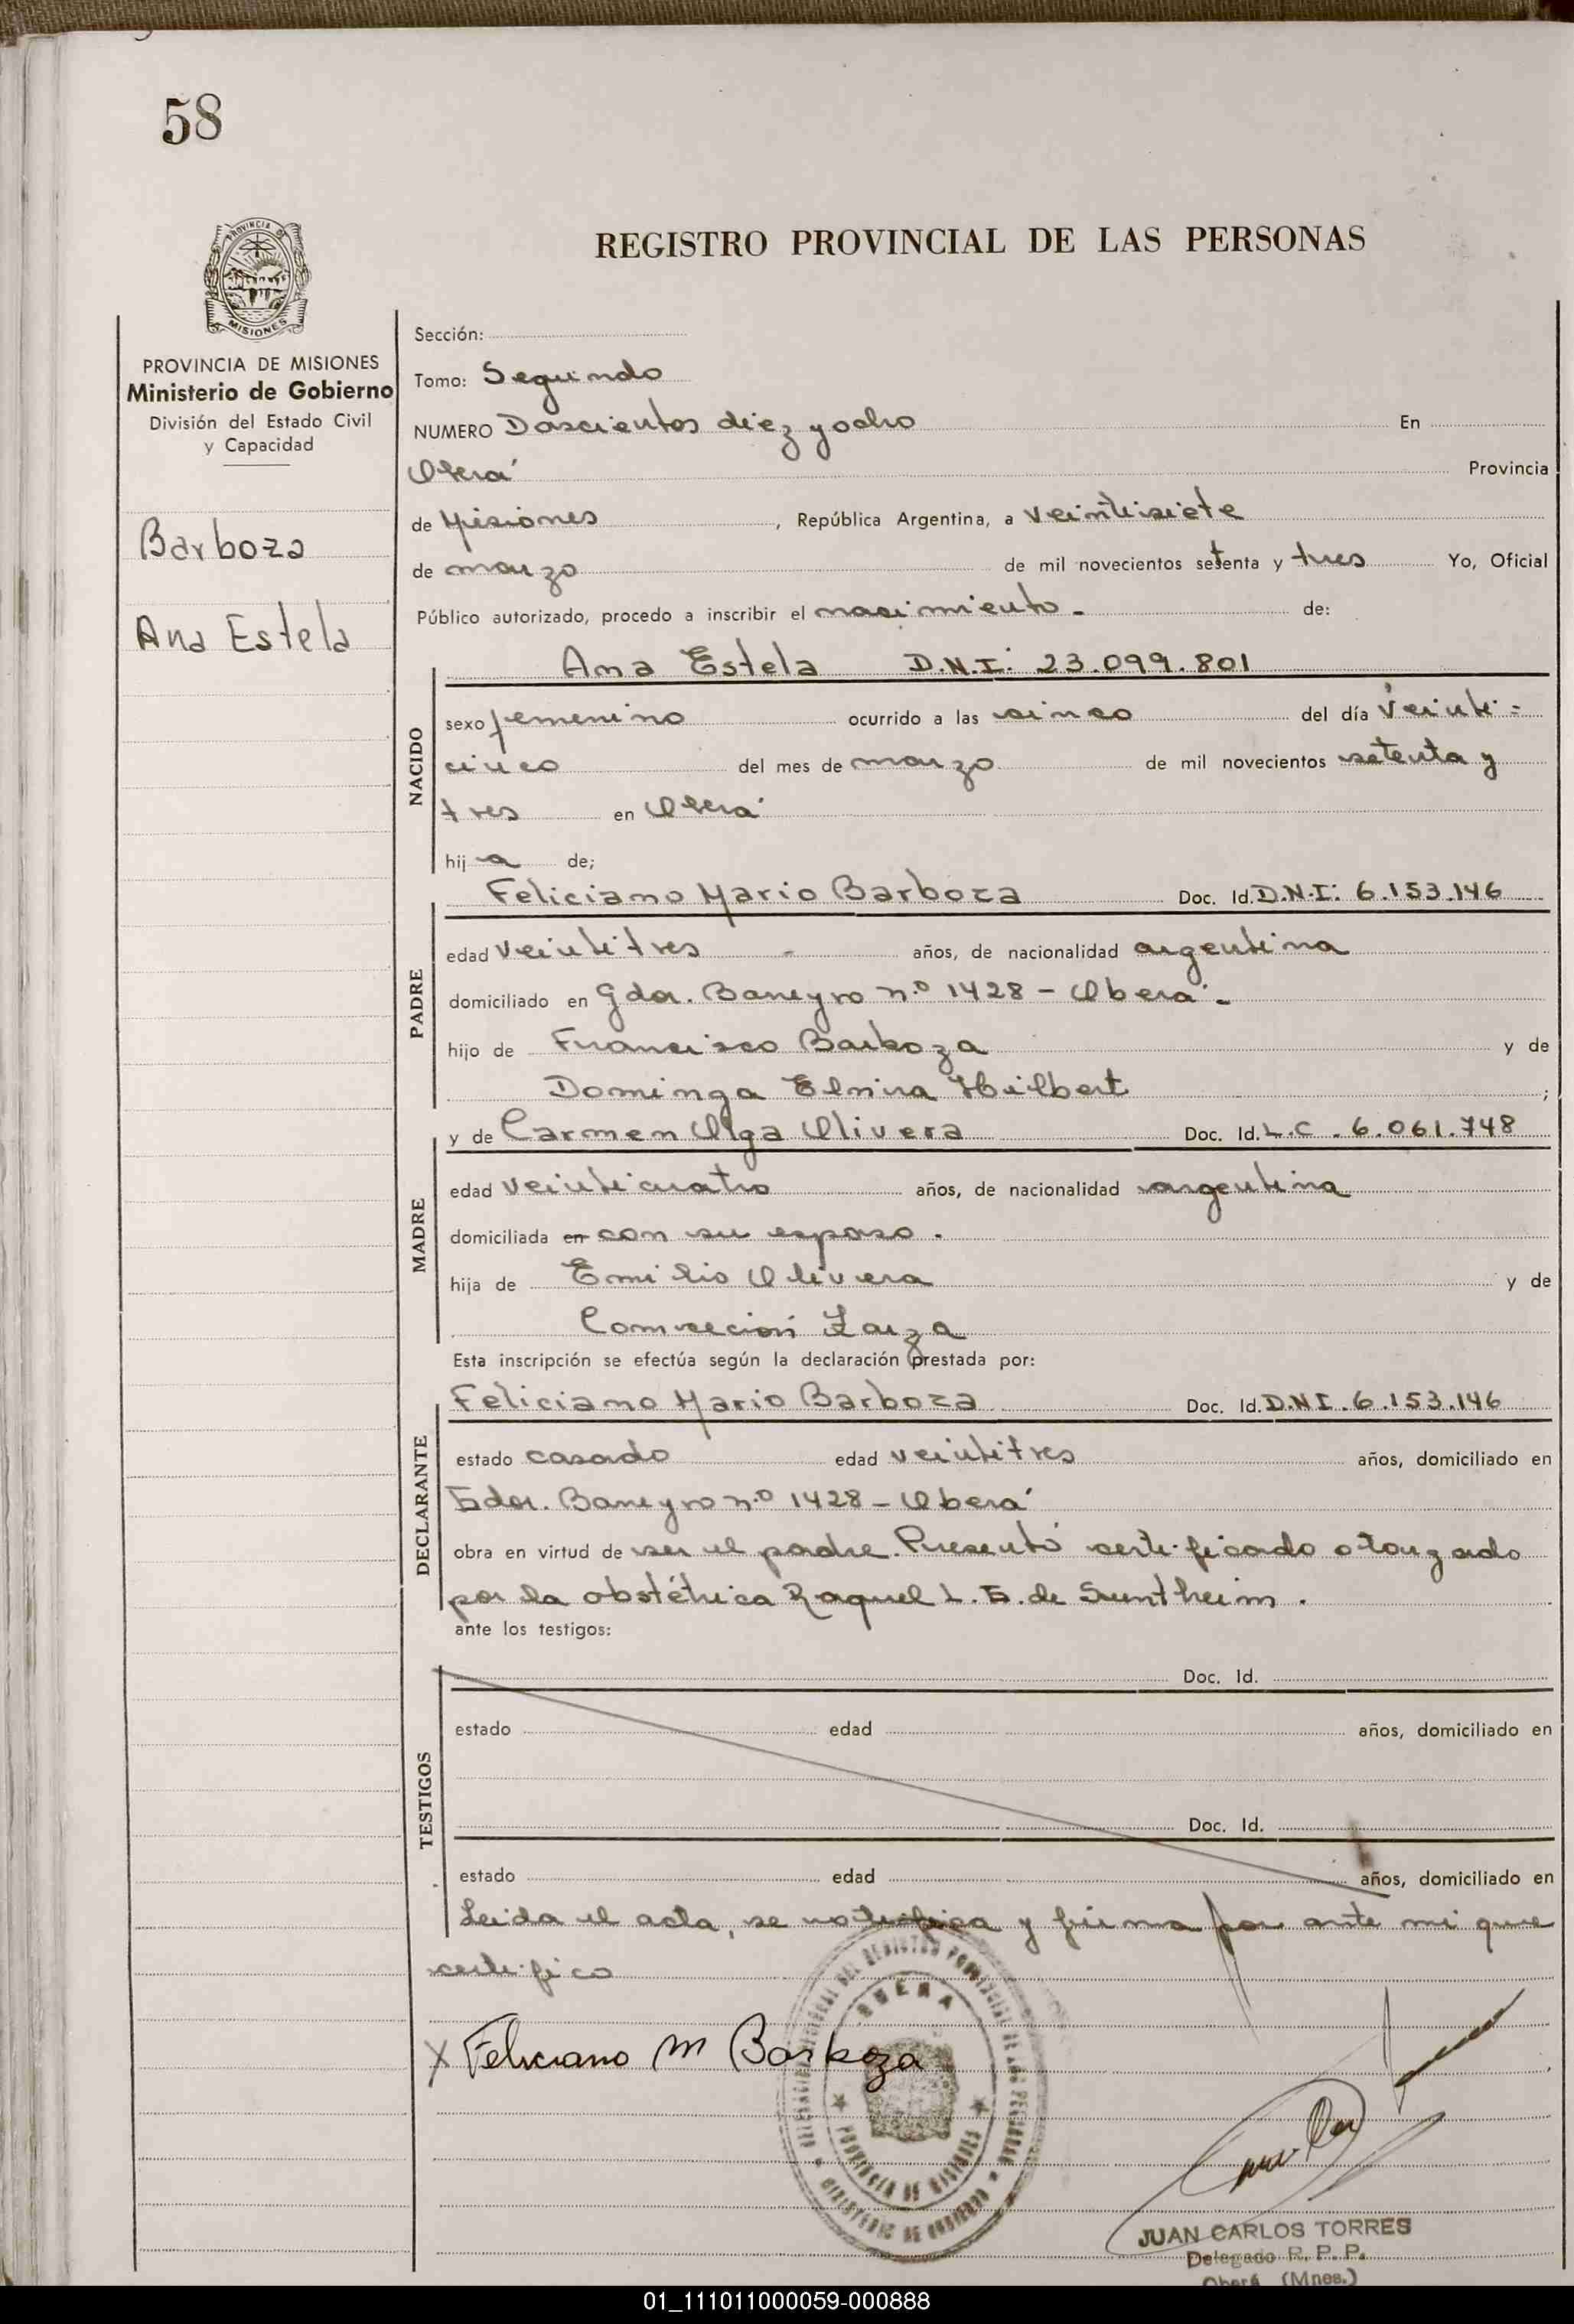 58
PROVINCIA DE
MISIONES
REGISTRO PROVINCIAL DE LAS PERSONAS
PROVINCIA DE MISIONES
Ministerio de Gobierno
División del Estado Civil
y Capacidad
Barboza
Ana Estela
Sección:
Tomo: Segundo
NUMERO Doscientos diez y ocho En
Oberá Provincia
de Misiones, República Argentina, a veintisiete
de marzo de mil novecientos setenta y tres Yo, Oficial
Público autorizado, procedo a inscribir el nacimiento.- de:
Ana Estela D.N.I: 23.099.801
NACIDO
sexo femenino ocurrido a las cinco del día veinti-
cinco del mes de marzo de mil novecientos setenta y
tres en Oberá
hija de;
Feliciano Mario Barboza Doc. Id. D.N.I: 6.153.146
PADRE
edad veintitres años, de nacionalidad argentina
domiciliado en Gdor. Bareyro n.º 1428 - Oberá.-
hijo de Francisco Barboza y de
Dominga Elvira Hilbert;
y de Carmen Olga Olivera Doc. Id. L.C. 6.061.748
MADRE
edad veinticuatro años, de nacionalidad argentina
domiciliada en con su esposo.
hija de Emilio Olivera y de
Zarza
Esta inscripción se efectúa según la declaración prestada por:
Feliciano Mario Barboza Doc. Id. D.N.I. 6.153.146
DECLARANTE
estado casado edad veintitres años, domiciliado en
Gdor. Bareyro n.º 1428 - Oberá
obra en virtud de ser el padre. Presentó certificado otorgado
por la obstétrica Raquel L. G. de Suntheim.
ante los testigos:
TESTIGOS
Doc. Id.
estado edad años, domiciliado en
Doc. Id.
estado edad años, domiciliado en
Leida el acta, se notifica y firma por ante mi que
certifico
X Feliciano M Barboza
OBERA
PROVINCIA DE MISIONES
MINISTERIO DE GOBIERNO
JUAN CARLOS TORRES
Delegado R. P. P.
Oberá (Mnes.)
01_111011000059-000888